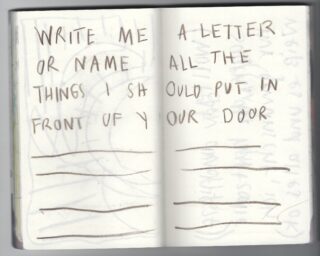 WRITE ME A LETTER
OR NAME ALL THE
THINGS I SHOULD PUT IN
FRONT OF YOUR DOOR